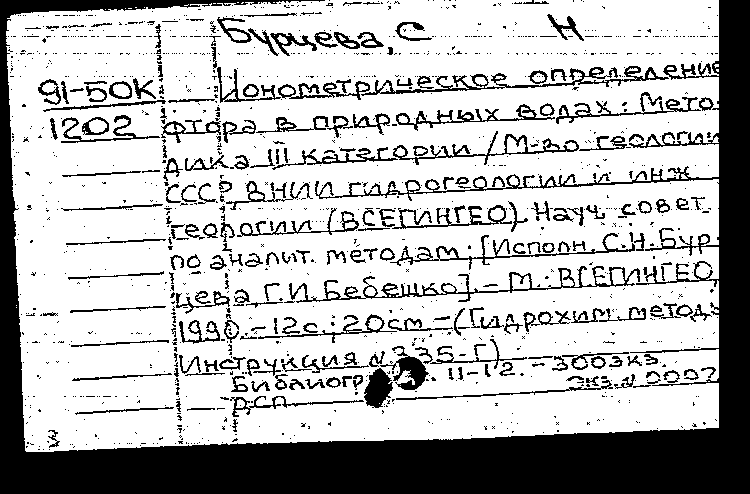 Бурцева, С Н
91-50К Ионометрическое определение
1202 фтора в природных водах: Мето-
дика III категории / М-во геологии
СССР, ВНИИ гидрогеологии и инж
геологии (ВСЕГИНГЕО). Науч. совет
по аналит. методам; [Исполн. С.Н. Бур-
цева, Г.И. Бебешко]. – М.: ВСЕГИНГЕО,
1990. – 12с.; 20см – (Гидрохим. методы
Инструкция N 335-Г)
Библиогр 11-12. – 300экз.
Экз. N 0002
ДСП